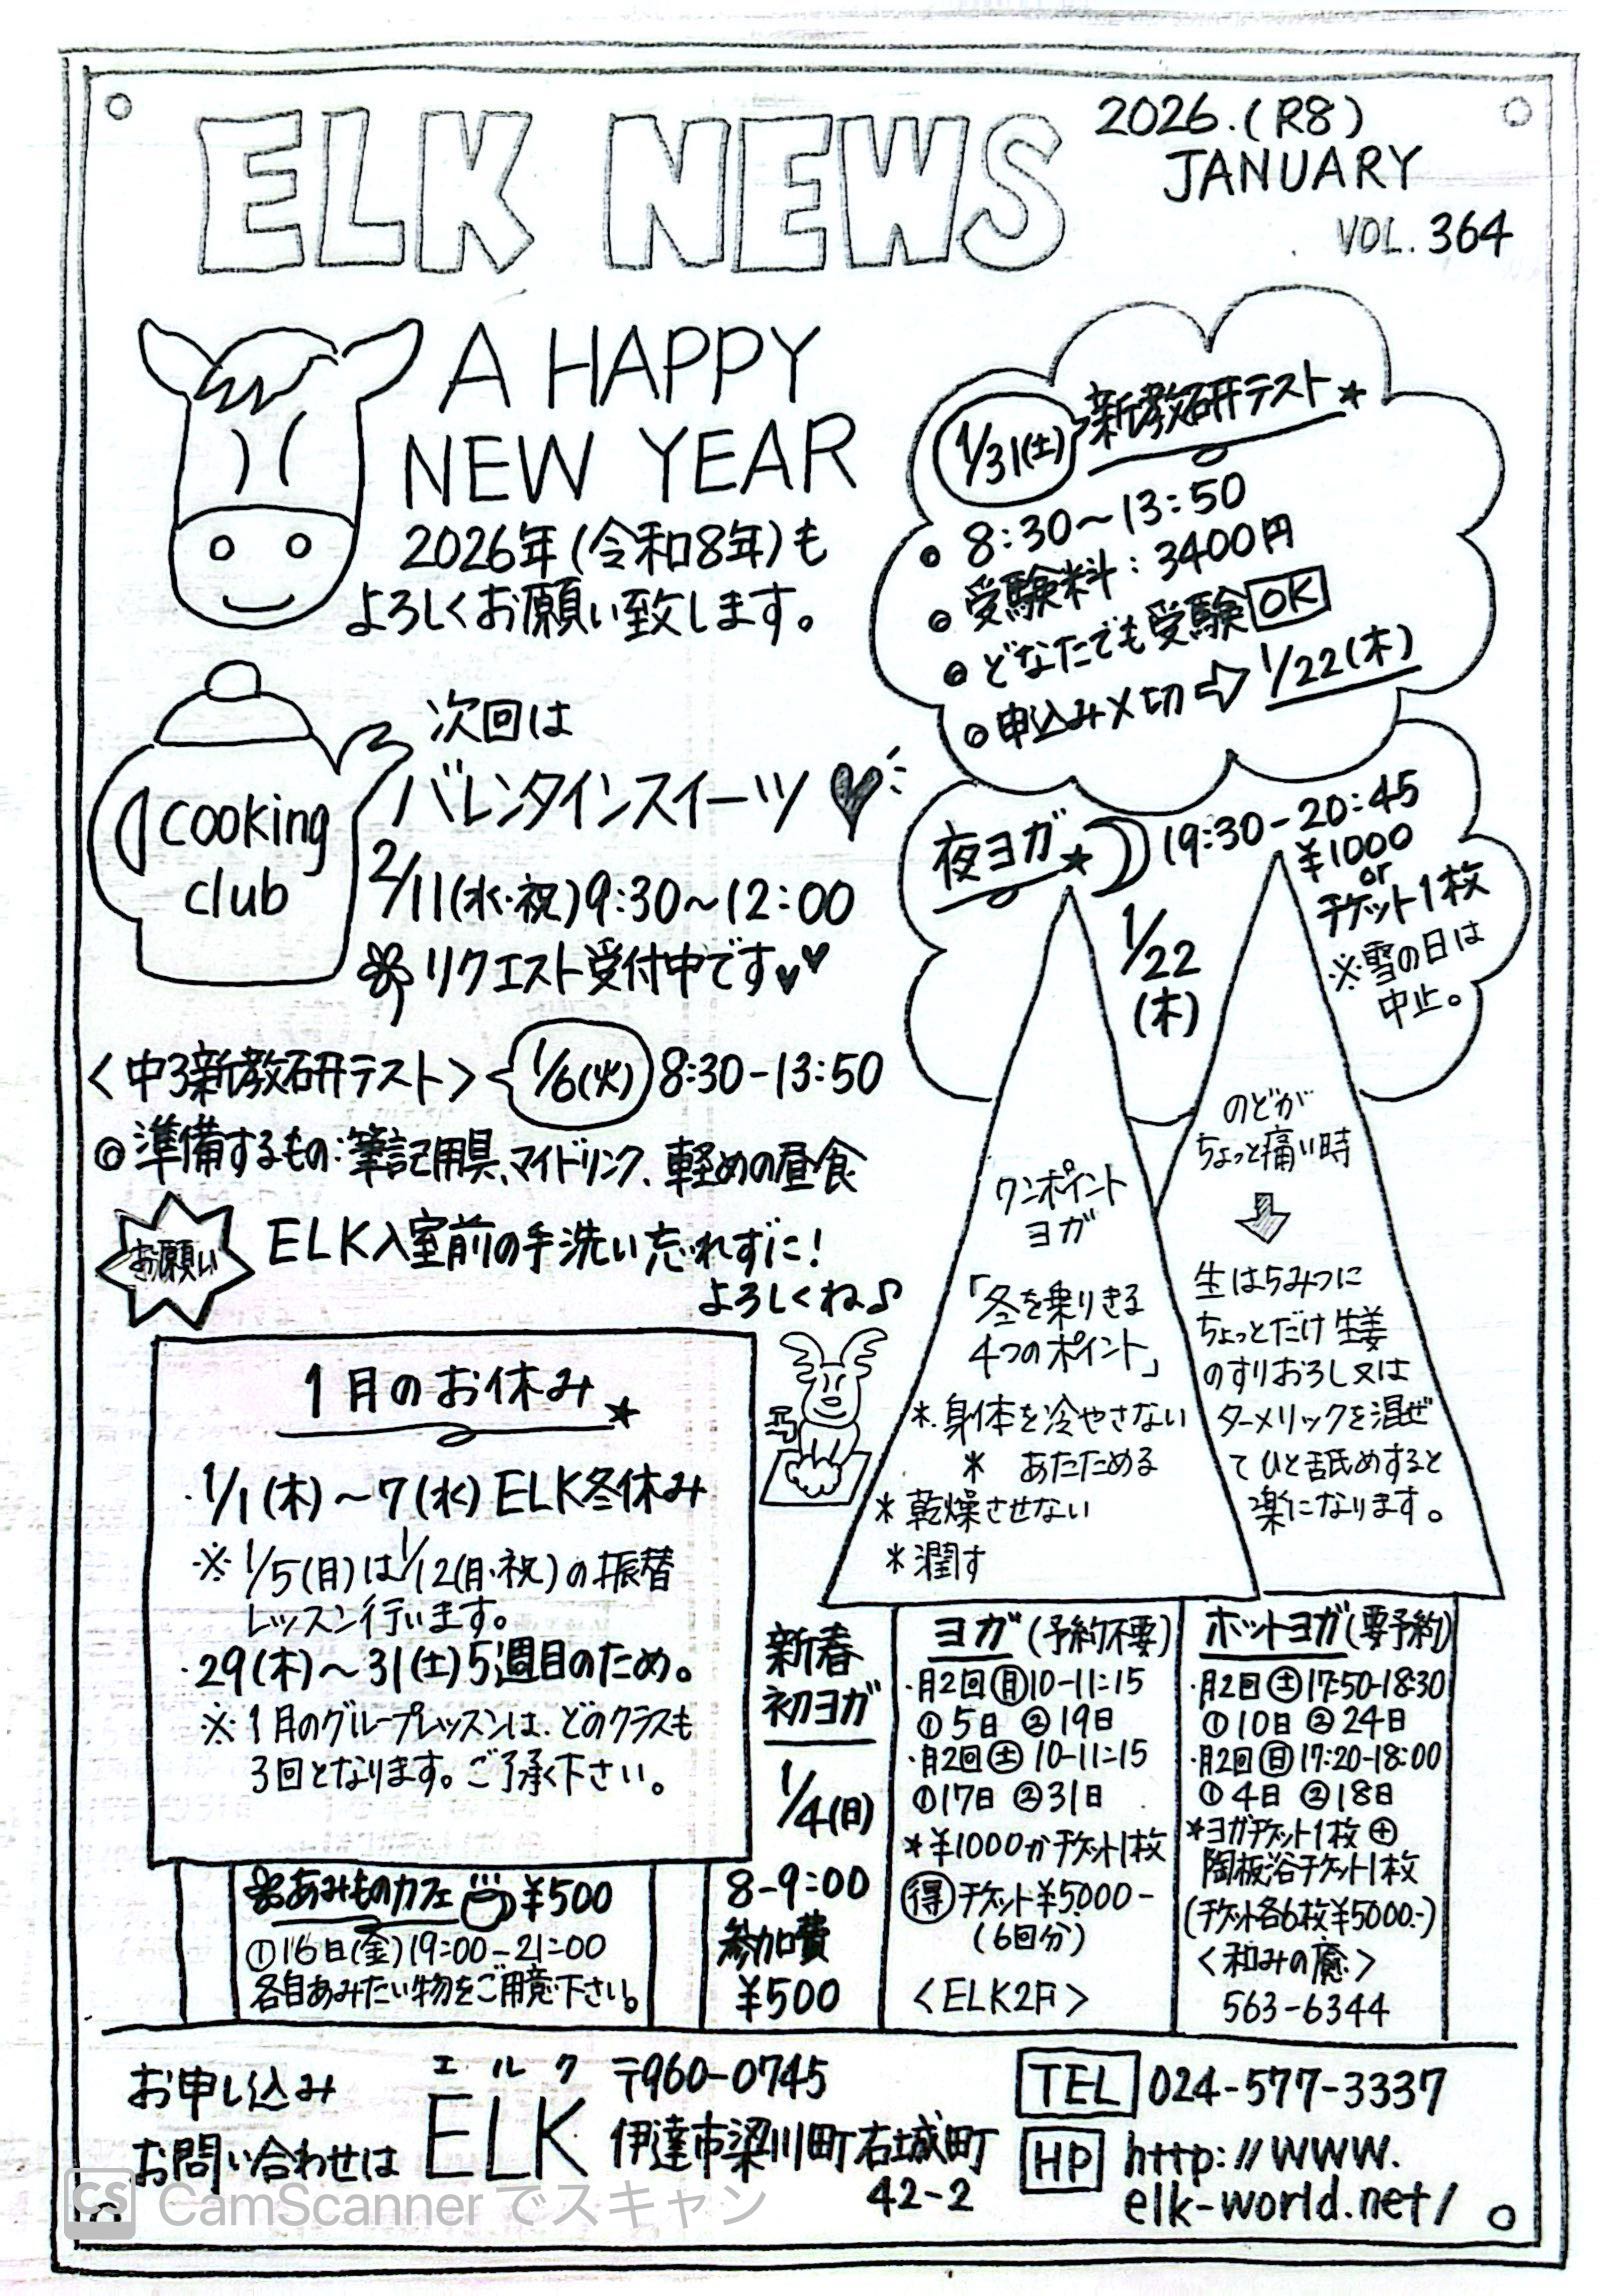 ELK NEWS
2026.(R8)
JANUARY
VOL. 364
A HAPPY
NEW YEAR
2026年(令和8年)も
よろしくお願い致します。
1/31(土)新教研テスト★
◎ 8:30〜13:50
◎ 受験料:3400円
◎ どなたでも受験OK
◎ 申込み〆切⇨1/22(木)
cooking
club
次回は
バレンタインスイーツ♥
2/11(水・祝)9:30〜12:00
リクエスト受付中です♥♥
夜ヨガ★
19:30-20:45
¥1000
or
チケット1枚
※雪の日は
中止。
1/22
(木)
<中3新教研テスト>1/6(火)8:30-13:50
◎準備するもの:筆記用具、マイドリンク、軽めの昼食
お願い
ELK入室前の手洗い忘れずに!
よろしくね♪
ワンポイント
ヨガ
「冬を乗りきる
4つのポイント」
*身体を冷やさない
* あたためる
*乾燥させない
*潤す
のどが
ちょっと痛い時
生はちみつに
ちょっとだけ生姜
のすりおろし又は
ターメリックを混ぜ
てひと舐めすると
楽になります。
1月のお休み★
・1/1(木)〜7(水)ELK冬休み
※1/5(月)は1/12(月・祝)の振替
レッスン行います。
・29(木)〜31(土)5週目のため。
※1月のグループレッスンは、どのクラスも
3回となります。ご了承下さい。
あみものカフェ ¥500
①16日(金)19:00-21:00
各自あみたい物をご用意下さい。
新春
初ヨガ
1/4(日)
8-9:00
参加費
¥500
ヨガ(予約不要)
・月2回㊊10-11:15
①5日 ②19日
・月2回㊏10-11:15
①17日 ②31日
*¥1000かチケット1枚
得チケット¥5000-
(6回分)
<ELK2F>
ホットヨガ(要予約)
・月2回㊏17:50-18:30
①10日 ②24日
・月2回㊐17:20-18:00
①4日 ②18日
*ヨガチケット1枚⊕
陶板浴チケット1枚
(チケット各6枚¥5000-)
<和みの癒>
563-6344
お申し込み
お問い合わせは
エルク
ELK
〒960-0745
伊達市梁川町右城町
42-2
TEL 024-577-3337
HP http://www.
elk-world.net/
CS CamScannerでスキャン